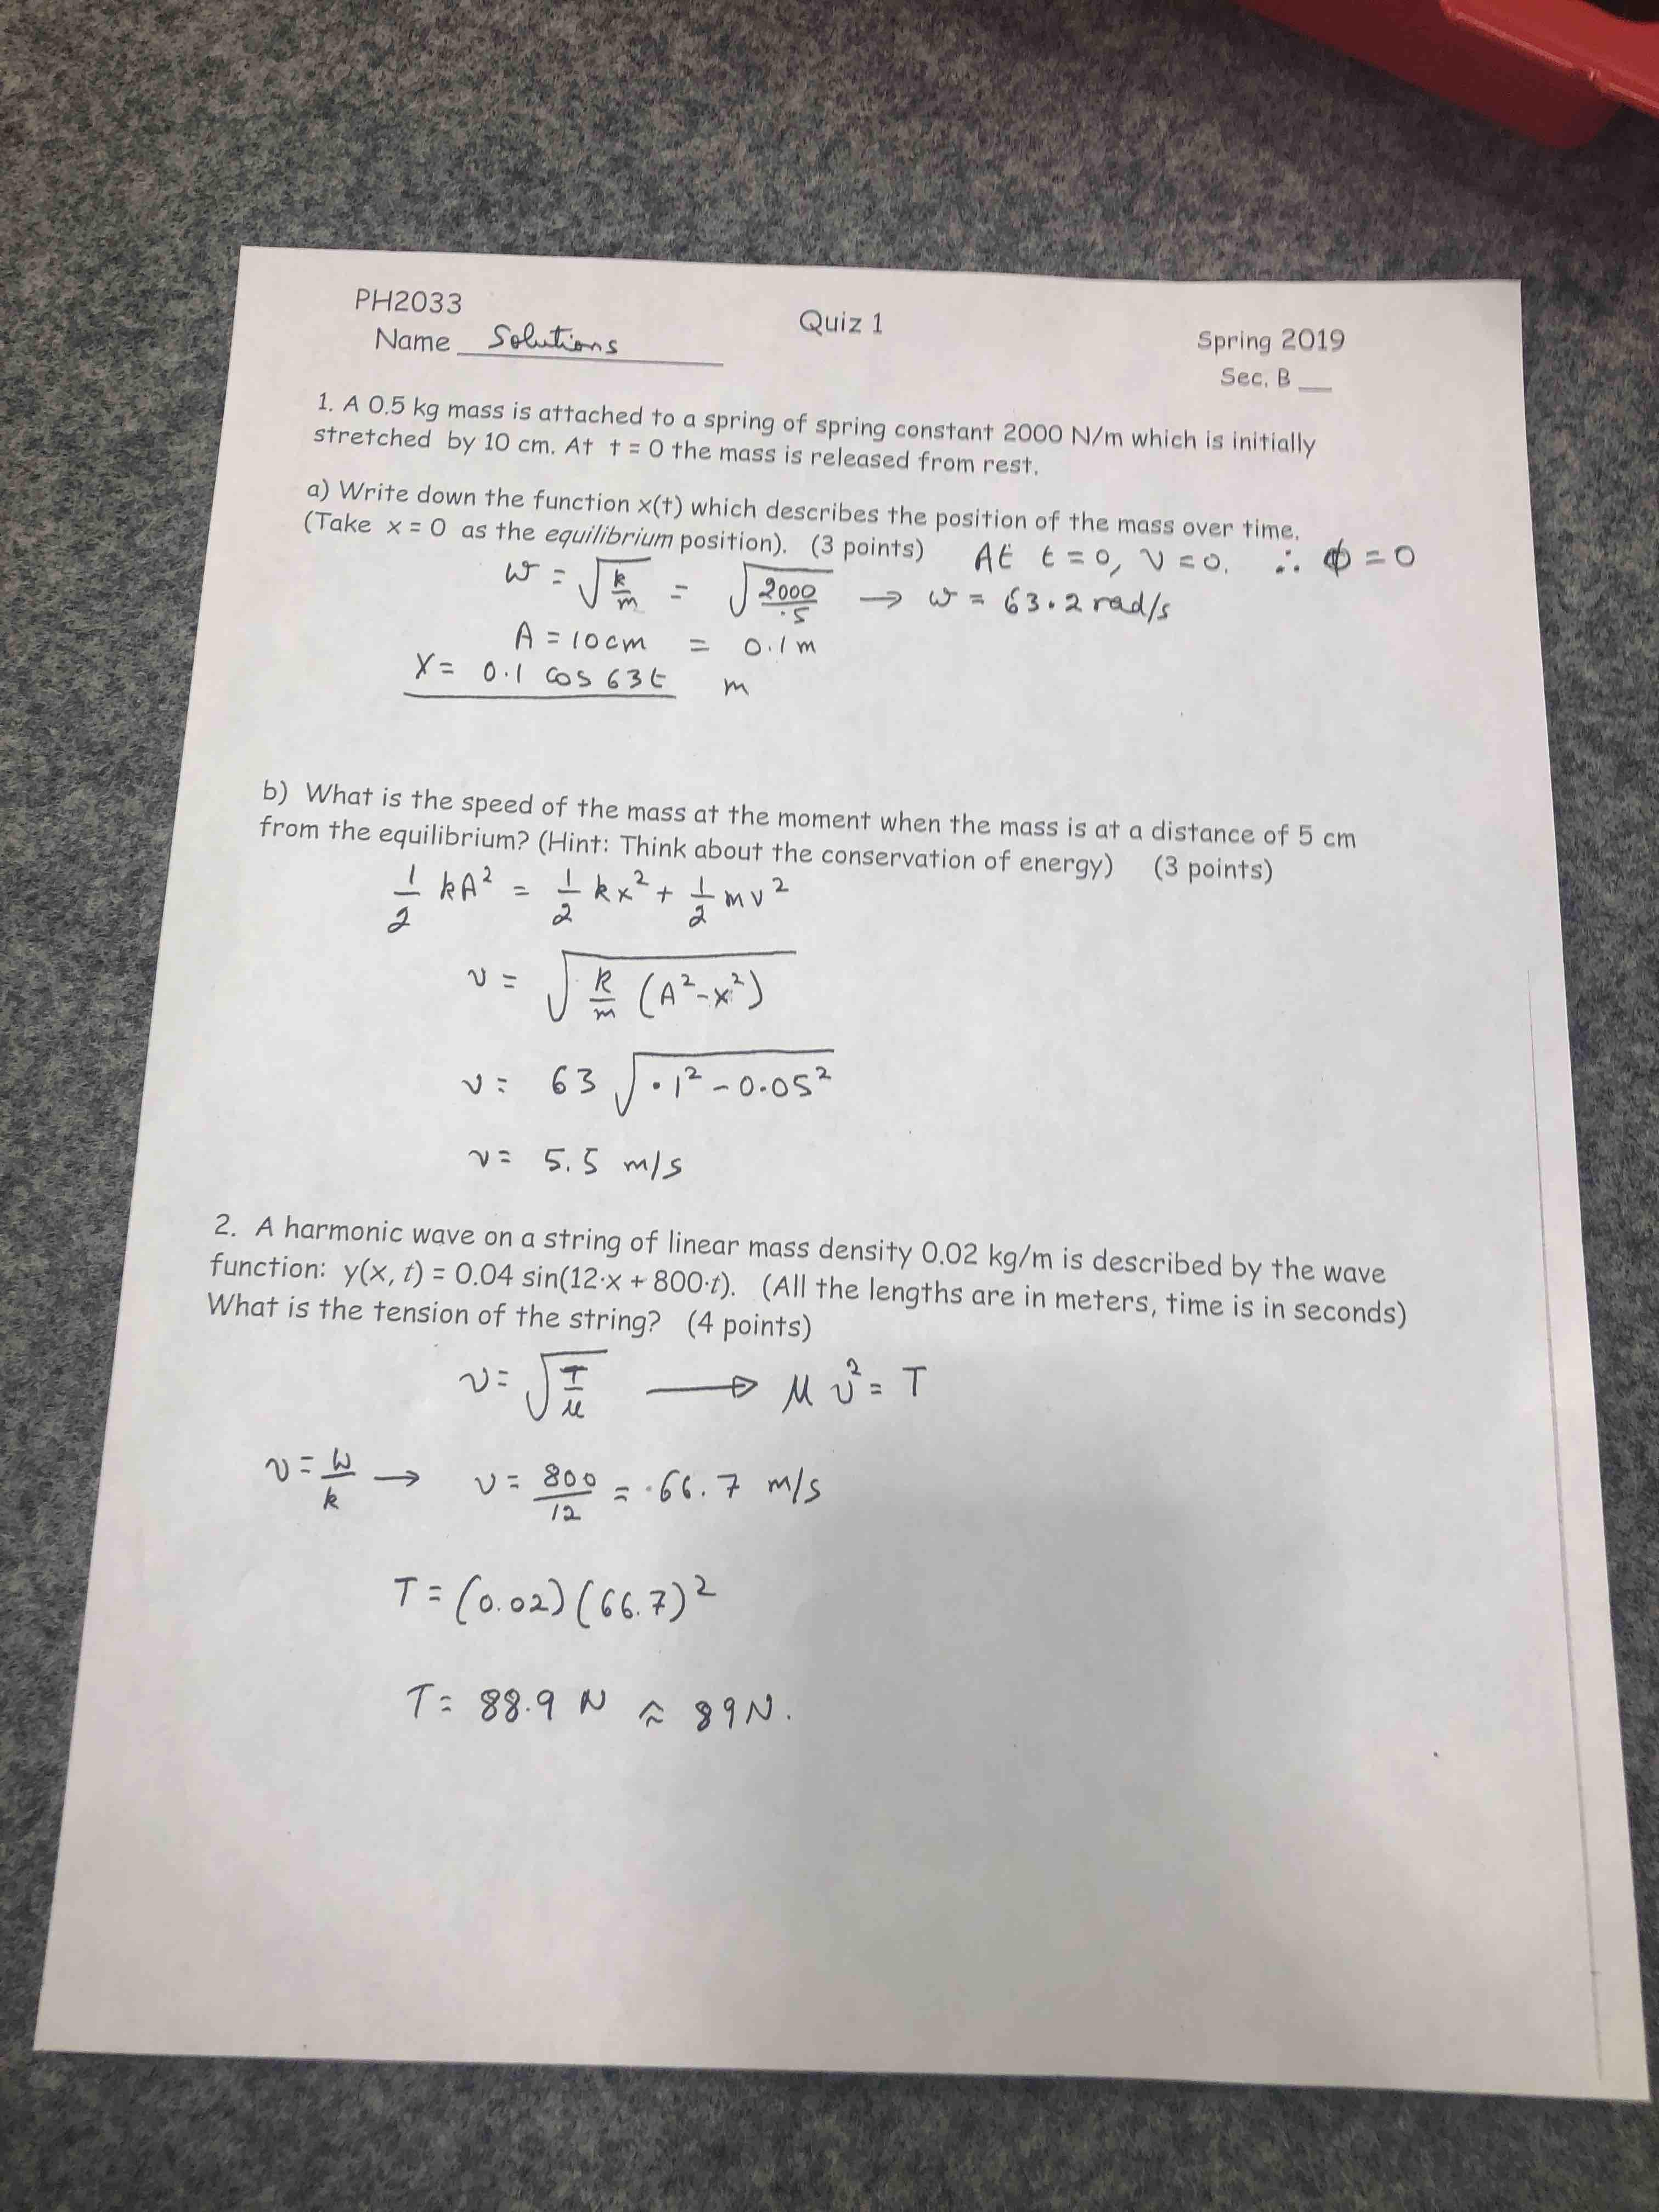 PH2033
Quiz 1
Spring 2019
Name Solutions
Sec. B __
1. A 0.5 kg mass is attached to a spring of spring constant 2000 N/m which is initially
stretched by 10 cm. At t = 0 the mass is released from rest.
a) Write down the function x(t) which describes the position of the mass over time.
(Take x = 0 as the equilibrium position). (3 points)
At t = 0, v = 0. ∴ ϕ = 0
ω = √(k/m) = √(2000/.5) → ω = 63.2 rad/s
A = 10 cm = 0.1 m
X = 0.1 cos 63t m
b) What is the speed of the mass at the moment when the mass is at a distance of 5 cm
from the equilibrium? (Hint: Think about the conservation of energy) (3 points)
1/2 kA² = 1/2 kx² + 1/2 mv²
v = √(k/m (A²-x²))
v = 63 √(.1² - 0.05²)
v = 5.5 m/s
2. A harmonic wave on a string of linear mass density 0.02 kg/m is described by the wave
function: y(x, t) = 0.04 sin(12·x + 800·t). (All the lengths are in meters, time is in seconds)
What is the tension of the string? (4 points)
v = √(T/μ) → μ v² = T
v = ω/k → v = 800/12 = 66.7 m/s
T = (0.02)(66.7)²
T = 88.9 N ≈ 89 N.